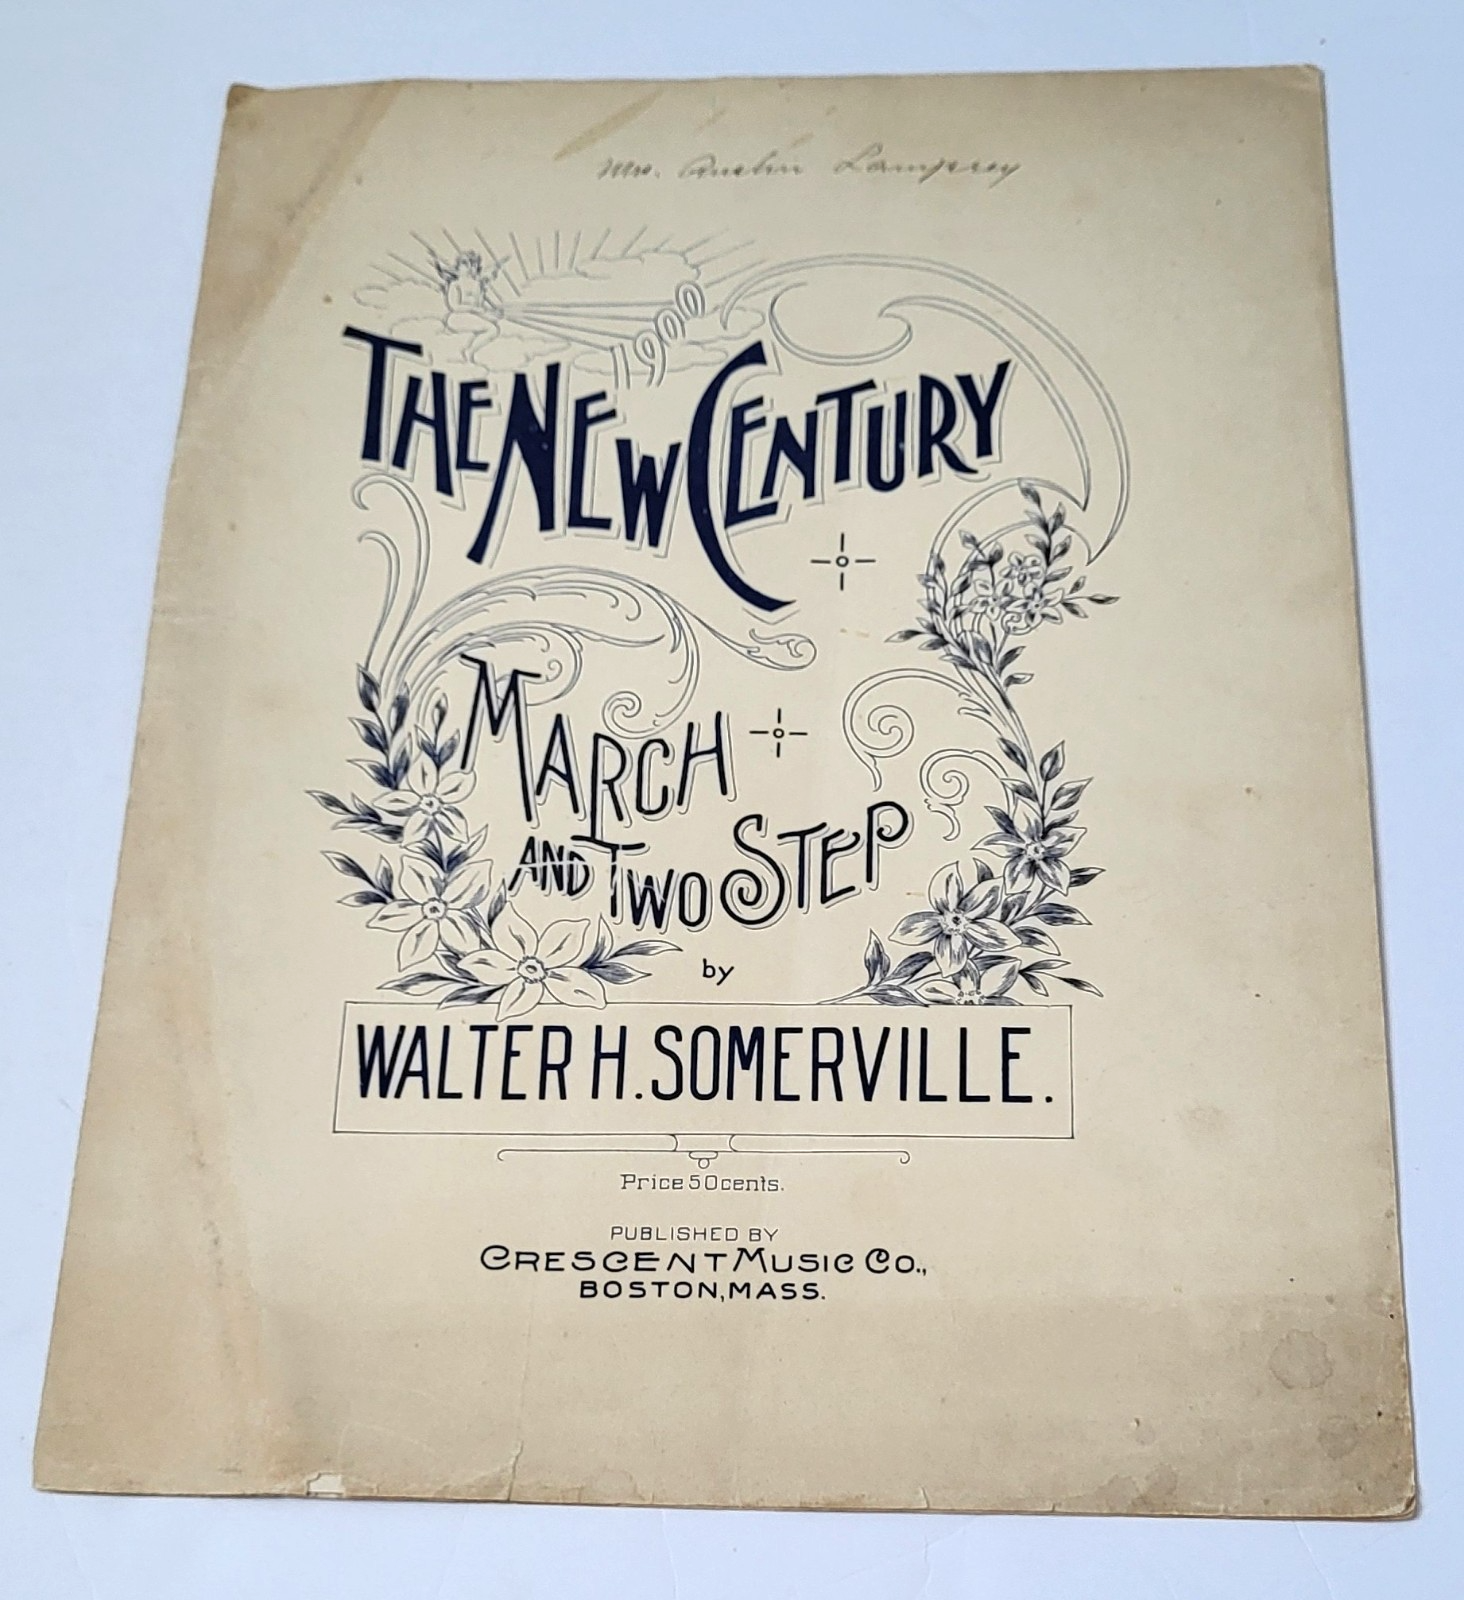 Mrs. Austin Lamprey
1900
THE NEW CENTURY
MARCH
AND TWO STEP
by
WALTER H. SOMERVILLE.
Price 50 cents.
PUBLISHED BY
CRESCENT MUSIC CO.,
BOSTON, MASS.